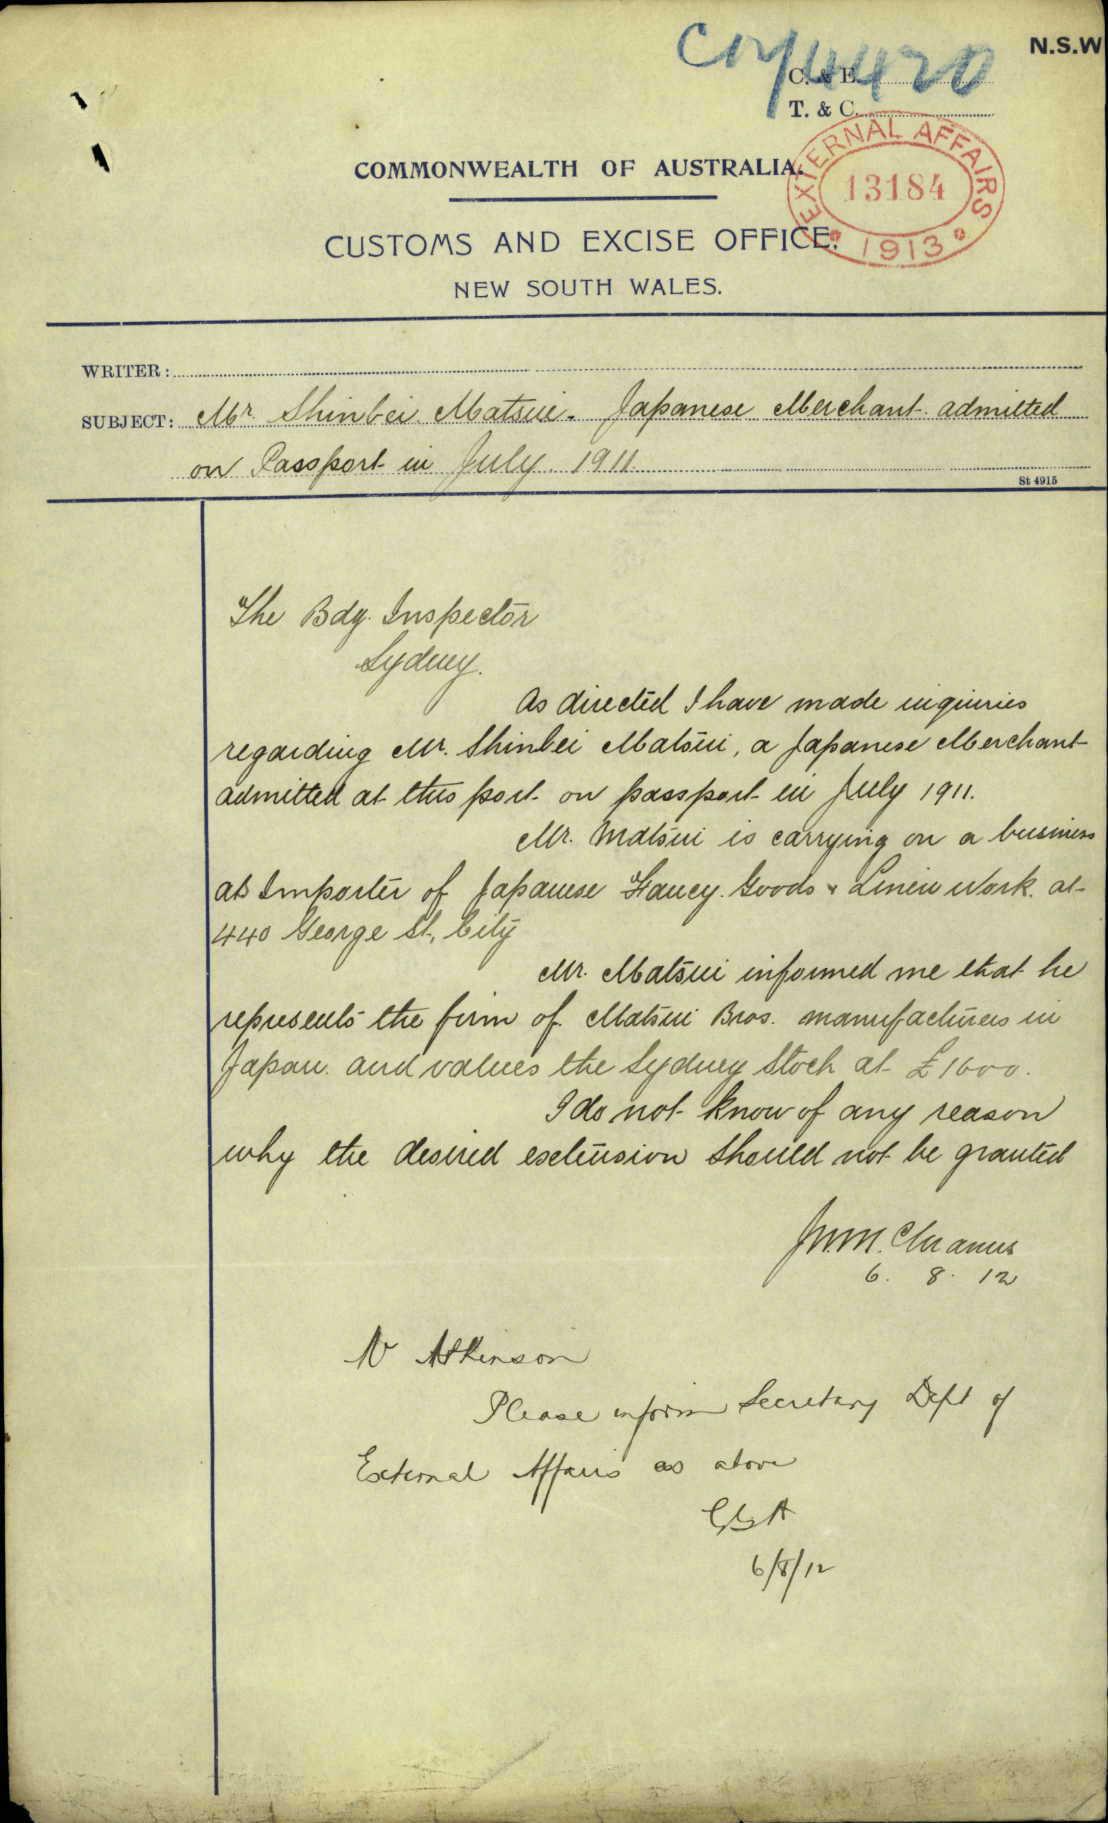 N.S.W
Copy 4420
C. & E.
T. & C.
COMMONWEALTH OF AUSTRALIA.
EXTERNAL AFFAIRS
13184
1913
CUSTOMS AND EXCISE OFFICE,
NEW SOUTH WALES.
WRITER:
SUBJECT: Mr Shinbei Matsui. Japanese Merchant admitted
on Passport in July 1911
St 4915
The Bdg. Inspector
Sydney.
As directed I have made inquiries
regarding Mr. Shinbei Matsui, a Japanese Merchant
admitted at this port on passport in July 1911.
Mr. Matsui is carrying on a business
as Importer of Japanese Fancy Goods & Linen Work at
440 George St, City
Mr. Matsui informed me that he
represents the firm of Matsui Bros. manufacturers in
Japan and values the Sydney Stock at £1600.
I do not know of any reason
why the desired extension should not be granted
6. 8. 12
Atkinson
Please inform Secretary Dept of
External Affairs as above
6/8/12